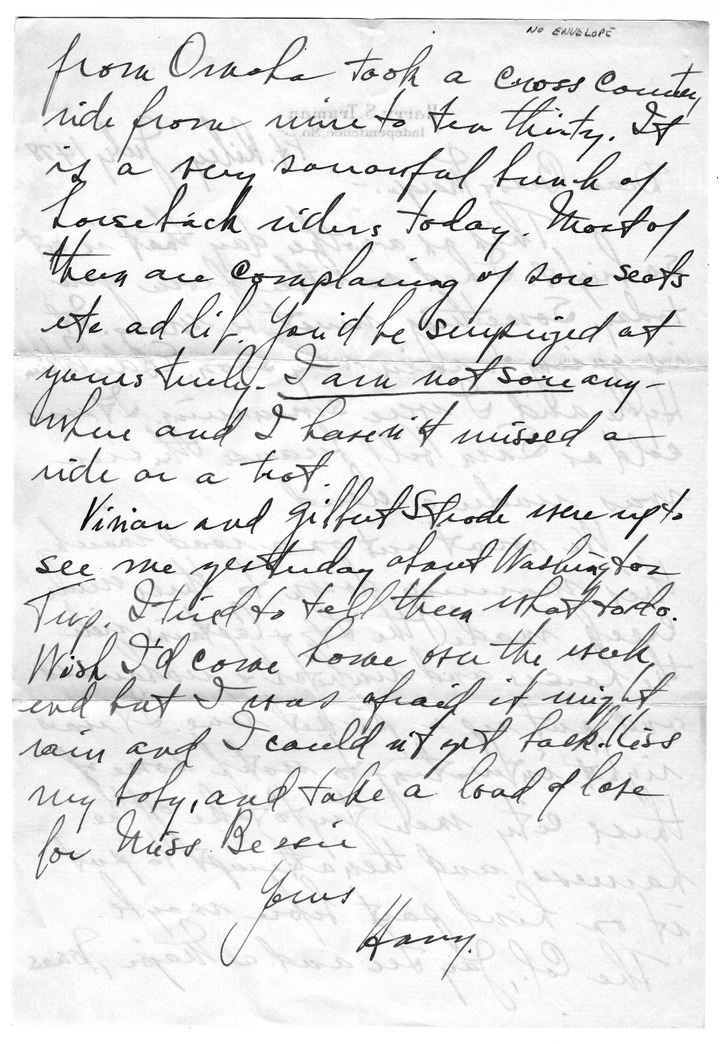 NO ENVELOPE
from Omaha took a cross country
ride from nine to ten thirty. It
is a very sorrowful bunch of
horseback riders today. Most of
them are complaining of sore seats
etc ad lib. You'd be surprized at
yours truly. I am not sore any-
where and I haven't missed a
ride or a trot.
Vivian and Gilbert Strode were up to
see me yesterday about Washington
Twp. I tried to tell them what to do.
Wish I'd come home over the week
end but I was afraid it might
rain and I could n't get back. Kiss
my baby, and take a load of love
for Miss Bessie
Yours
Harry.
Harry S. Truman
Independence, Mo.